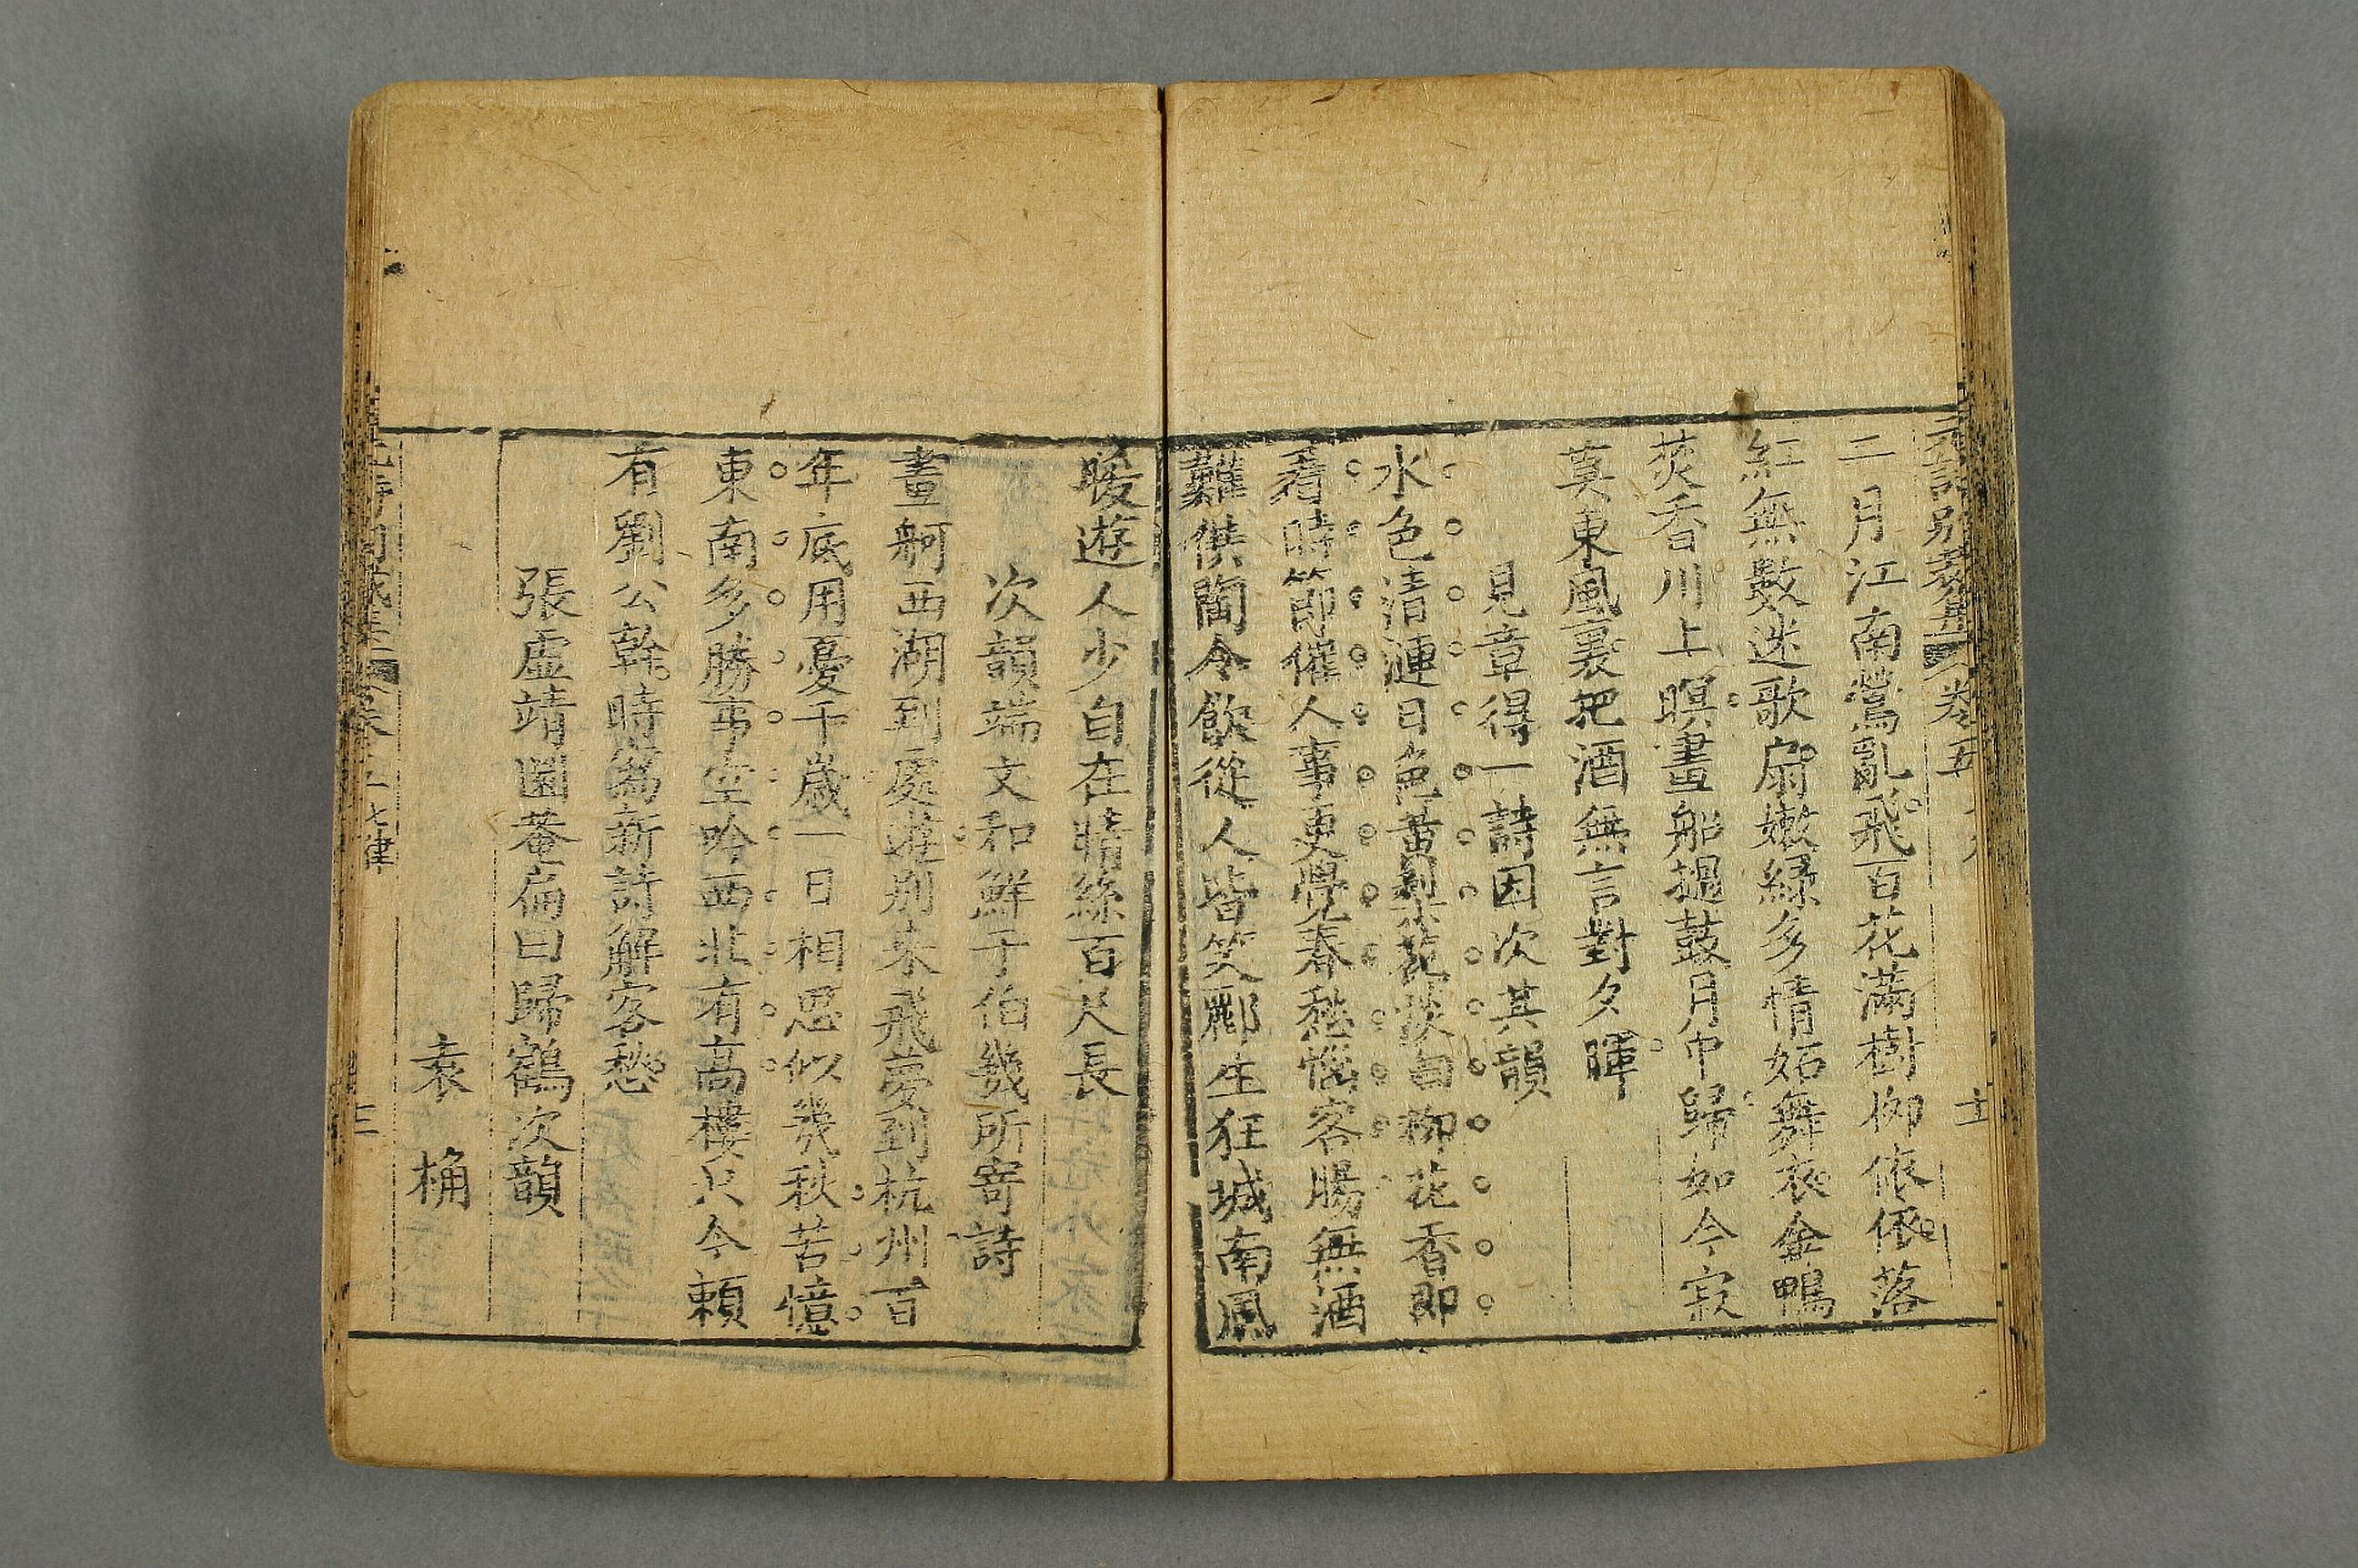 二月江南鶯亂飛百花滿樹柳依依落
紅無數迷歌扇嫩綠多情妬舞衣金鴨
焚香川上暝畫船撾鼓月中歸如今寂
莫東風裏把酒無言對夕暉
見章得一詩因次其韻
水色清漣日色黃梨花淡白柳花香即
看時節催人事更覺春愁惱客腸無酒
難供陶令飲從人皆笑酈生狂城南風
暖遊人少自在晴絲百尺長
次韻端文和鮮于伯幾所寄詩
畫舸西湖到處遊別來飛夢到杭州百
年底用憂千歲一日相思似幾秋苦憶
東南多勝事空吟西北有高樓只今賴
有劉公幹時爲新詩解客愁
張虛靖圜菴扁曰歸鶴次韻
袁桷
七律
三